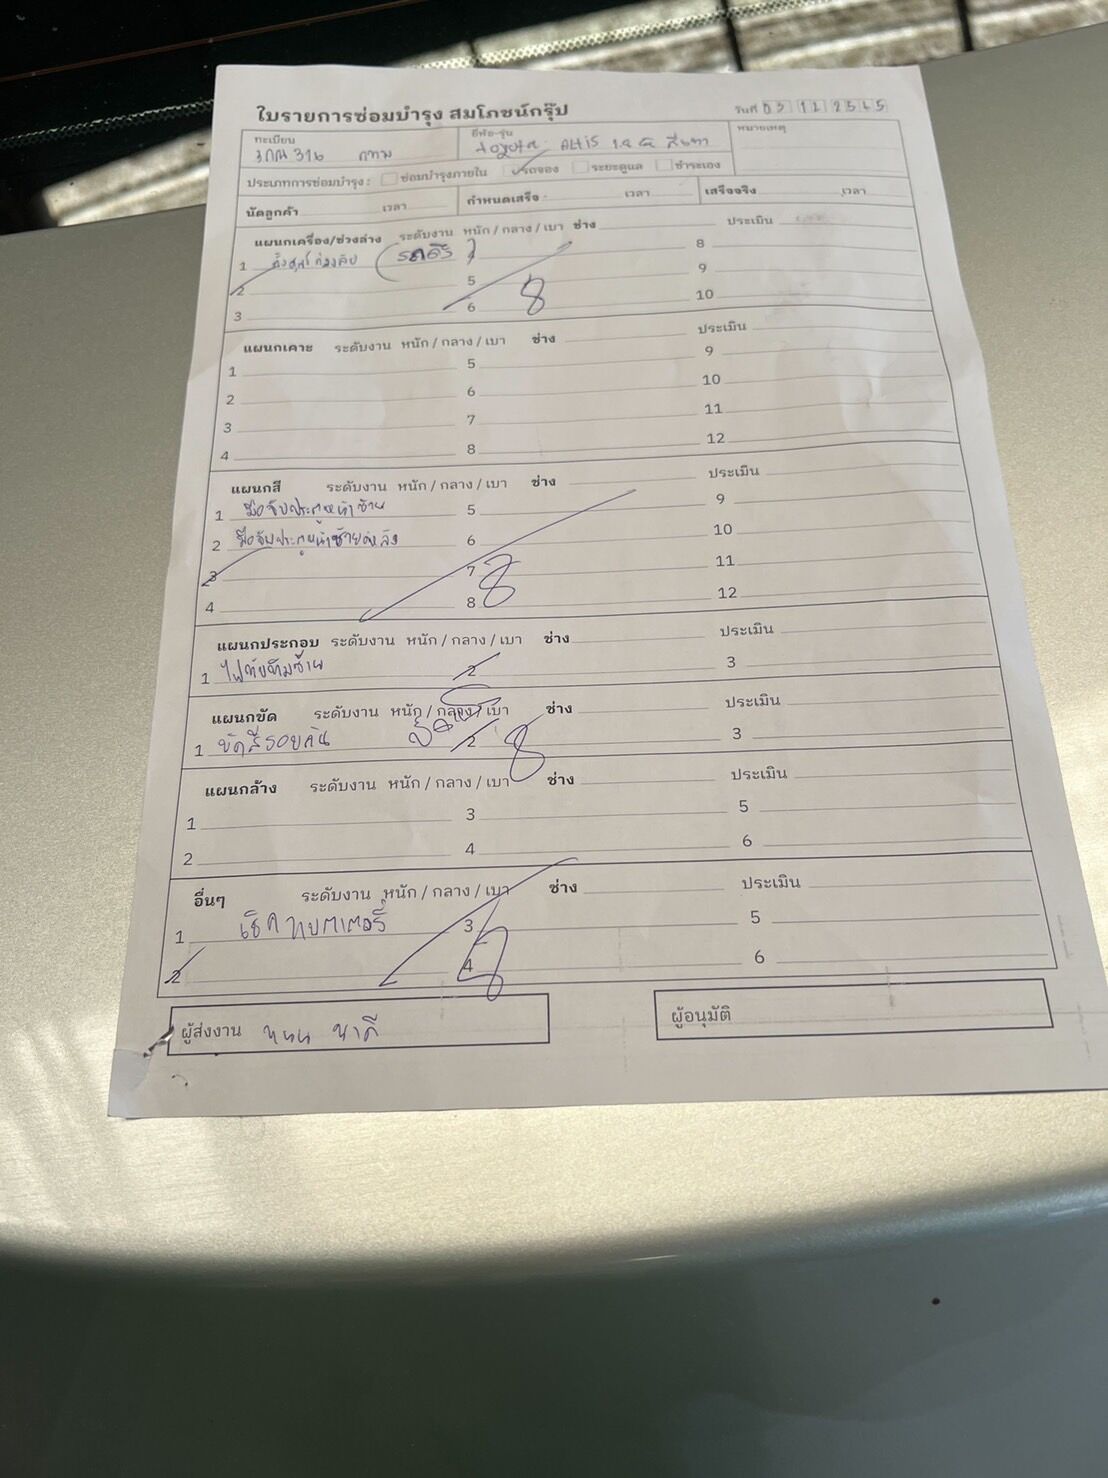 ใบรายการซ่อมบำรุง สมโภชน์กรุ๊ป
วันที่ 03 12 2565
ทะเบียน
316 กทม
ยี่ห้อ-รุ่น
toyota ALTIS สีเทา
หมายเหตุ
ประเภทการซ่อมบำรุง : ซ่อมบำรุงภายใน รถจอง ระยะดูแล ชำระเอง
นัดลูกค้า เวลา กำหนดเสร็จ เวลา เสร็จจริง เวลา
แผนกเครื่อง/ช่วงล่าง ระดับงาน หนัก / กลาง / เบา ช่าง ประเมิน
1 8
2 5 9
3 6 8 10
แผนกเคาะ ระดับงาน หนัก / กลาง / เบา ช่าง ประเมิน
1 5 9
2 6 10
3 7 11
4 8 12
แผนกสี ระดับงาน หนัก / กลาง / เบา ช่าง ประเมิน
1 มือจับประตูหน้าซ้าย 5 9
2 6 10
3 7 11
4 8 8 12
แผนกประกอบ ระดับงาน หนัก / กลาง / เบา ช่าง ประเมิน
1 2 3
แผนกขัด ระดับงาน หนัก / กลาง / เบา ช่าง ประเมิน
1 ขัดสีรอบคัน 2 8 3
แผนกล้าง ระดับงาน หนัก / กลาง / เบา ช่าง ประเมิน
1 3 5
2 4 6
อื่นๆ ระดับงาน หนัก / กลาง / เบา ช่าง ประเมิน
1 เช็ค 3 5
2 4 8 6
ผู้ส่งงาน
ผู้อนุมัติ